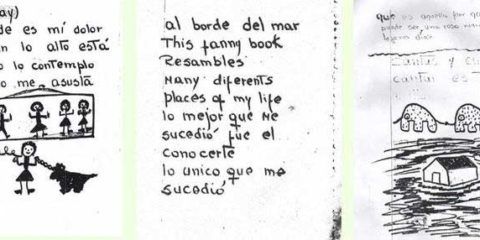 ay)
de es mí dolor
n lo alto está
o lo contemplo
o me asusta
al borde del mar
This fanny book
Resambles
Many diferents
places of my life
lo mejor que Me
sucedió fue el
conocerte
lo unico que me
sucedió
que es aquello por que
puede ser una rosa